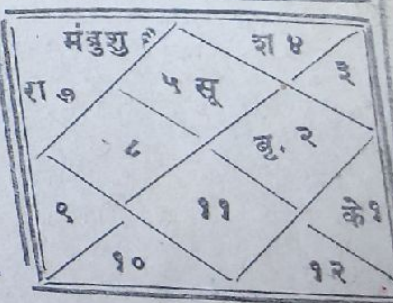 मंबुशु ६
श ४
३
रा ७
५ सू
८
बृ. २
९
११
के १
१०
१२